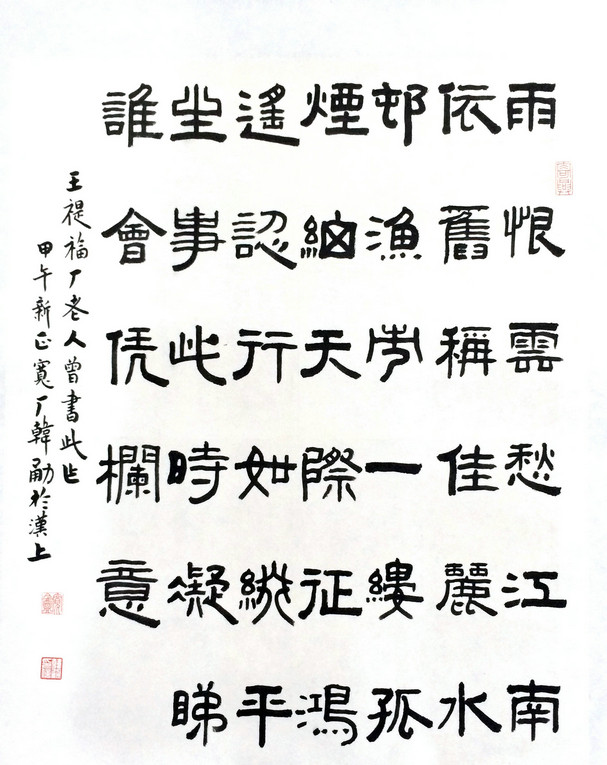 雨恨雲愁江南
依舊稱佳麗水
邨漁市一縷孤
煙細天際征鴻
遙認行如綴平
生事此時凝睇
誰會凭欄意
王禔福厂老人曾書此
甲午新正寬厂韓勇於漢上